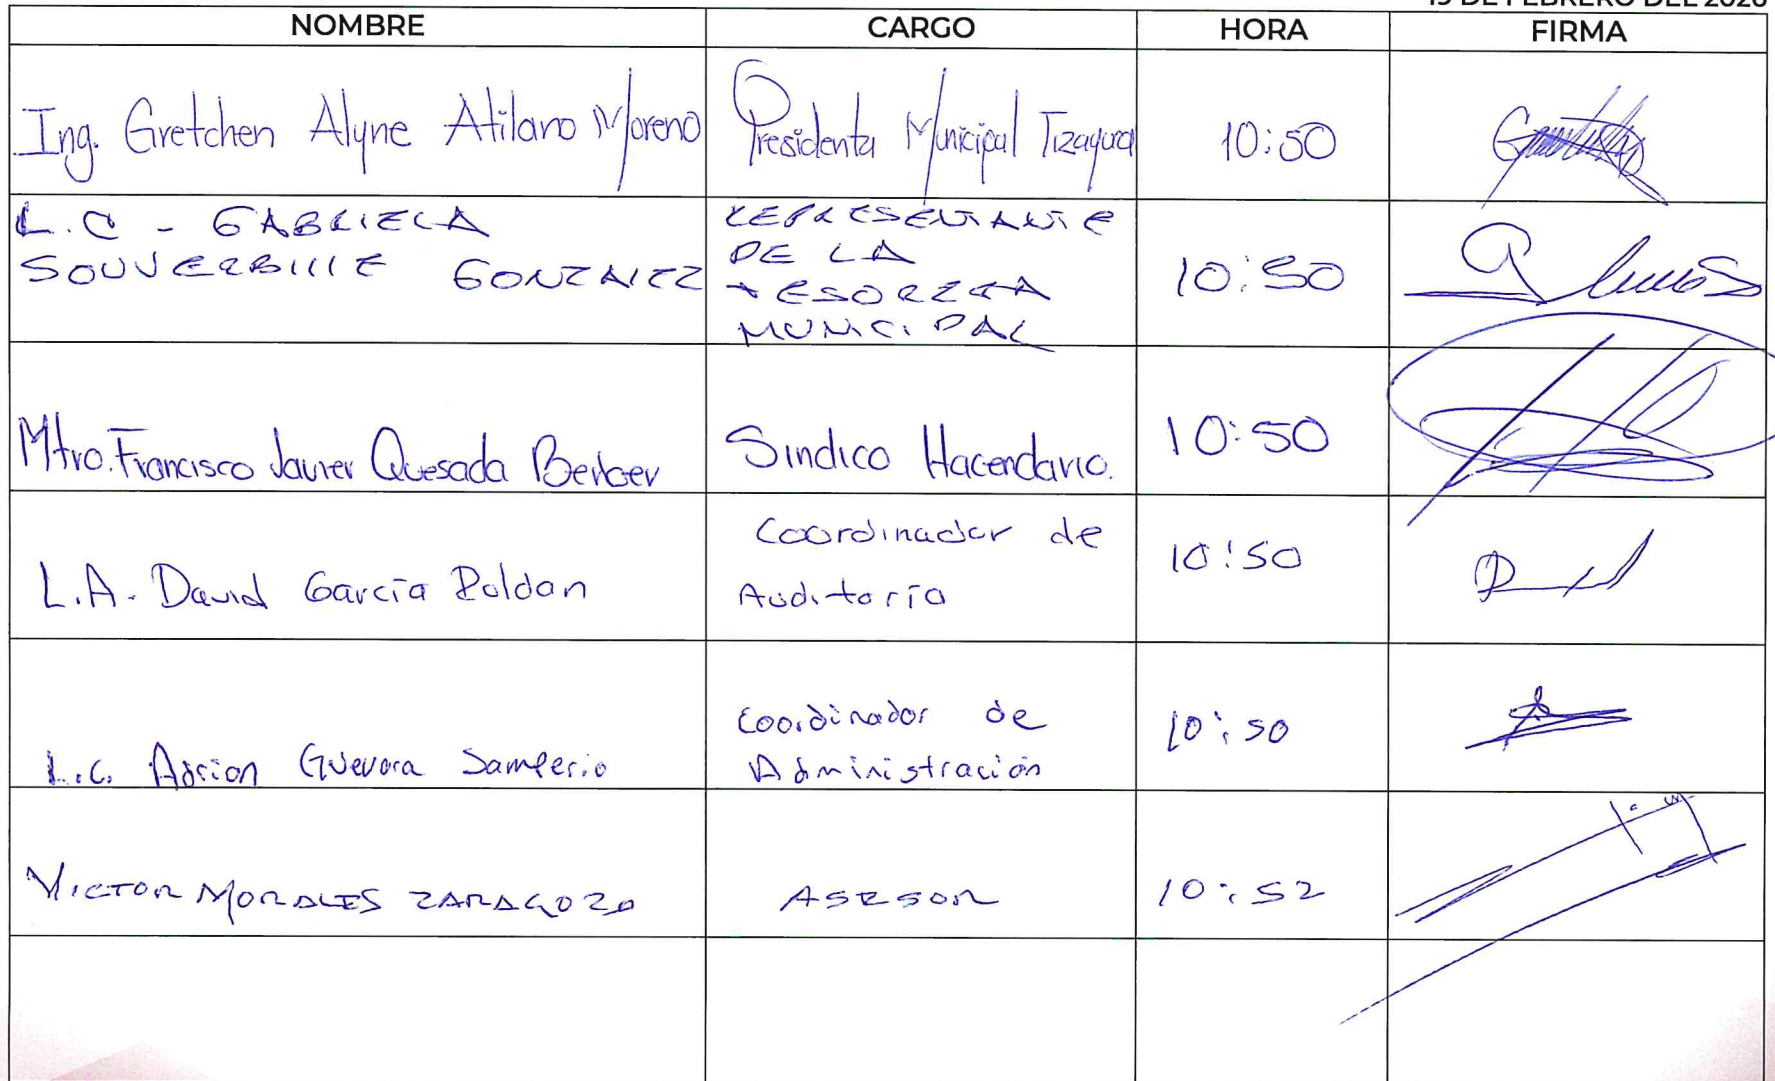 DE FEBRERO DEL 2026
NOMBRE CARGO HORA FIRMA
Ing. Gretchen Alyne Atilano Moreno Presidenta Municipal Tizayuca 10:50
L.C - GABRIELA
SOUVERBILLE GONZALEZ
REPRESENTANTE
DE LA
TESORERIA
MUNICIPAL
10:50
Mtro. Francisco Javier Quesada Berber Sindico Hacendario. 10:50
L.A. David García Roldan
Coordinador de
Auditoría
10:50
L.C. Adrian Guevara Samperio
Coordinador de
Administración
10:50
VICTOR MORALES ZARAGOZA ASESOR 10:52